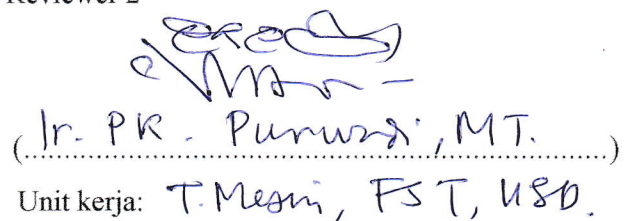 Reviewer 2
(Ir. PK. Purwadi, MT.)
Unit kerja: T. Mesin, FST, USD.